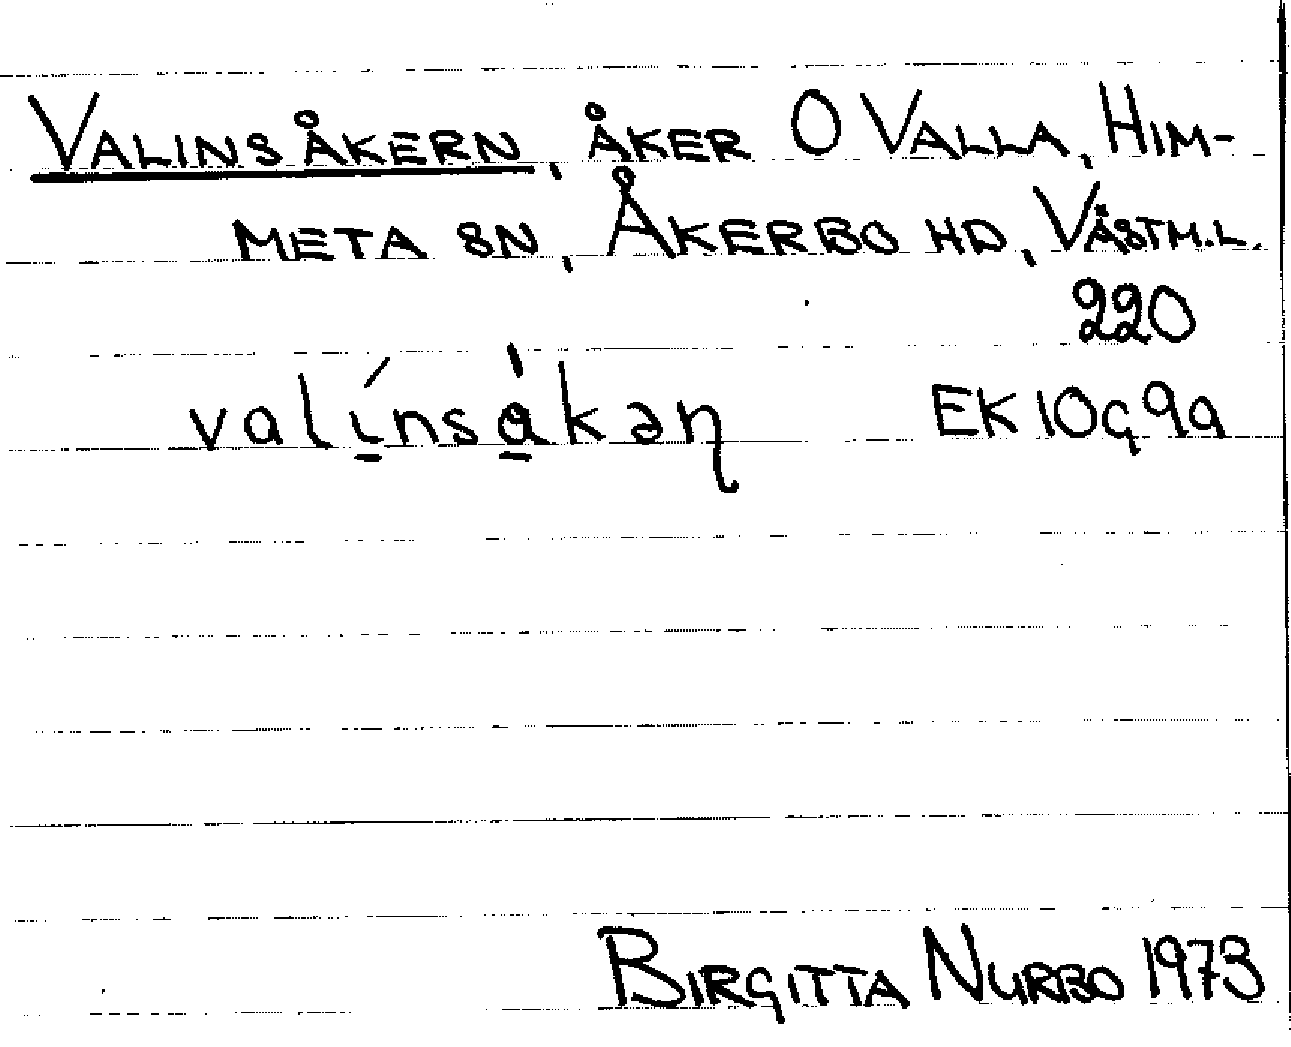 VALINSÅKERN, ÅKER O VALLA, HIM-
META SN, ÅKERBO HD, VÄSTM.L.
220
valínsåkəɳ EK 10G 9a
BIRGITTA NURBO 1973